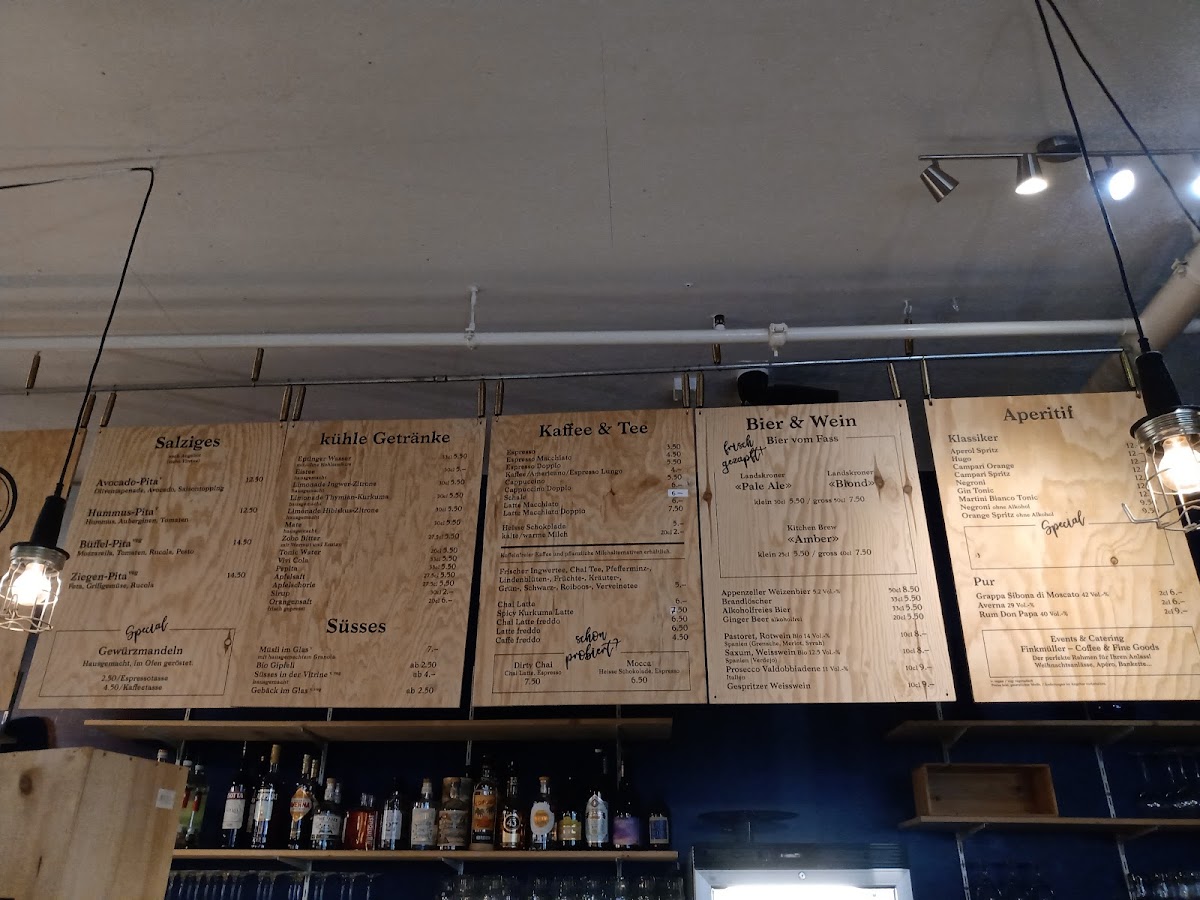 Salziges
Avocado-Pita* 12.50
Olivenapenade, Avocado, Saisontopping
Hummus-Pita* 12.50
Hummus, Auberginen, Tomaten
Büffel-Pita veg 14.50
Mozzarella, Tomaten, Rucola, Pesto
Ziegen-Pita veg 14.50
Feta, Grillgemüse, Rucola
Special
Gewürzmandeln
Hausgemacht, im Ofen geröstet.
2.50/Espressotasse
4.50/Kaffeetasse
kühle Getränke
Eptinger Wasser 5.50
Eistee 5.–
hausgemacht
Limonade Ingwer-Zitrone 5.50
hausgemacht
Limonade Thymian-Kurkuma 5.50
hausgemacht
Limonade Hibiskus-Zitrone 5.50
hausgemacht
Mate 5.50
Zobo Bitter
Tonic Water
Vivi Cola
Pepita
Apfelsaft
Apfelschorle
Sirup 2.–
Orangensaft 6.–
frisch gepresst
Süsses
Müsli im Glas 7.–
mit hausgemachtem Granola
Bio Gipfeli ab 2.50
Süsses in der Vitrine ab 4.–
hausgemacht
Gebäck im Glas ab 2.50
Kaffee & Tee
Espresso 3.50
Espresso Macchiato 4.50
Espresso Doppio 5.50
Kaffee/Americano/Espresso Lungo 4.–
Cappuccino 5.50
Cappuccino Doppio 6.–
Schale 6.–
Latte Macchiato 6.–
Latte Macchiato Doppio 7.50
Heisse Schokolade 5.–
kalte/warme Milch 20cl 2.–
Koffeinfreier Kaffee und pflanzliche Milchalternativen erhältlich
Frischer Ingwertee, Chai Tee, Pfefferminz-,
Lindenblüten-, Früchte-, Kräuter-,
Grün-, Schwarz-, Roibos-, Verveinetee 5.–
Chai Latte 6.–
Spicy Kurkuma Latte 7.50
Chai Latte freddo 6.50
Latte freddo 6.50
Caffè freddo 4.50
schon probiert?
Dirty Chai
Chai Latte, Espresso
7.50
Mocca
Heisse Schokolade, Espresso
6.50
Bier & Wein
frisch gezapft!
Bier vom Fass
Landskroner
«Pale Ale»
Landskroner
«Blond»
klein 30cl 5.50 / gross 50cl 7.50
Kitchen Brew
«Amber»
klein 25cl 5.50 / gross 40cl 7.50
Appenzeller Weizenbier 5.2 Vol.-% 50cl 8.50
Brandlöscher 33cl 5.50
Alkoholfreies Bier 33cl 5.50
Ginger Beer alkoholfrei 20cl 5.50
Pastoret, Rotwein Bio 14 Vol.-% 10cl 8.–
Spanien (Grenache, Merlot, Syrah)
Saxum, Weisswein Bio 12.5 Vol.-% 10cl 8.–
Spanien (Verdejo)
Prosecco Valdobbiadene 11 Vol.-% 10cl 9.–
Italien
Gespritzer Weisswein 10cl 9.–
Aperitif
Klassiker
Aperol Spritz
Hugo
Campari Orange
Campari Spritz
Negroni
Gin Tonic
Martini Bianco Tonic
Negroni ohne Alkohol
Orange Spritz ohne Alkohol
Special
Pur
Grappa Sibona di Moscato 42 Vol.-% 2cl 6.–
Averna 29 Vol.-% 2cl 6.–
Rum Don Papa 40 Vol.-% 2cl 9.–
Events & Catering
Finkmüller – Coffee & Fine Goods
Der perfekte Rahmen für Ihren Anlass!
Weihnachtsanlässe, Apéro, Bankette...
43